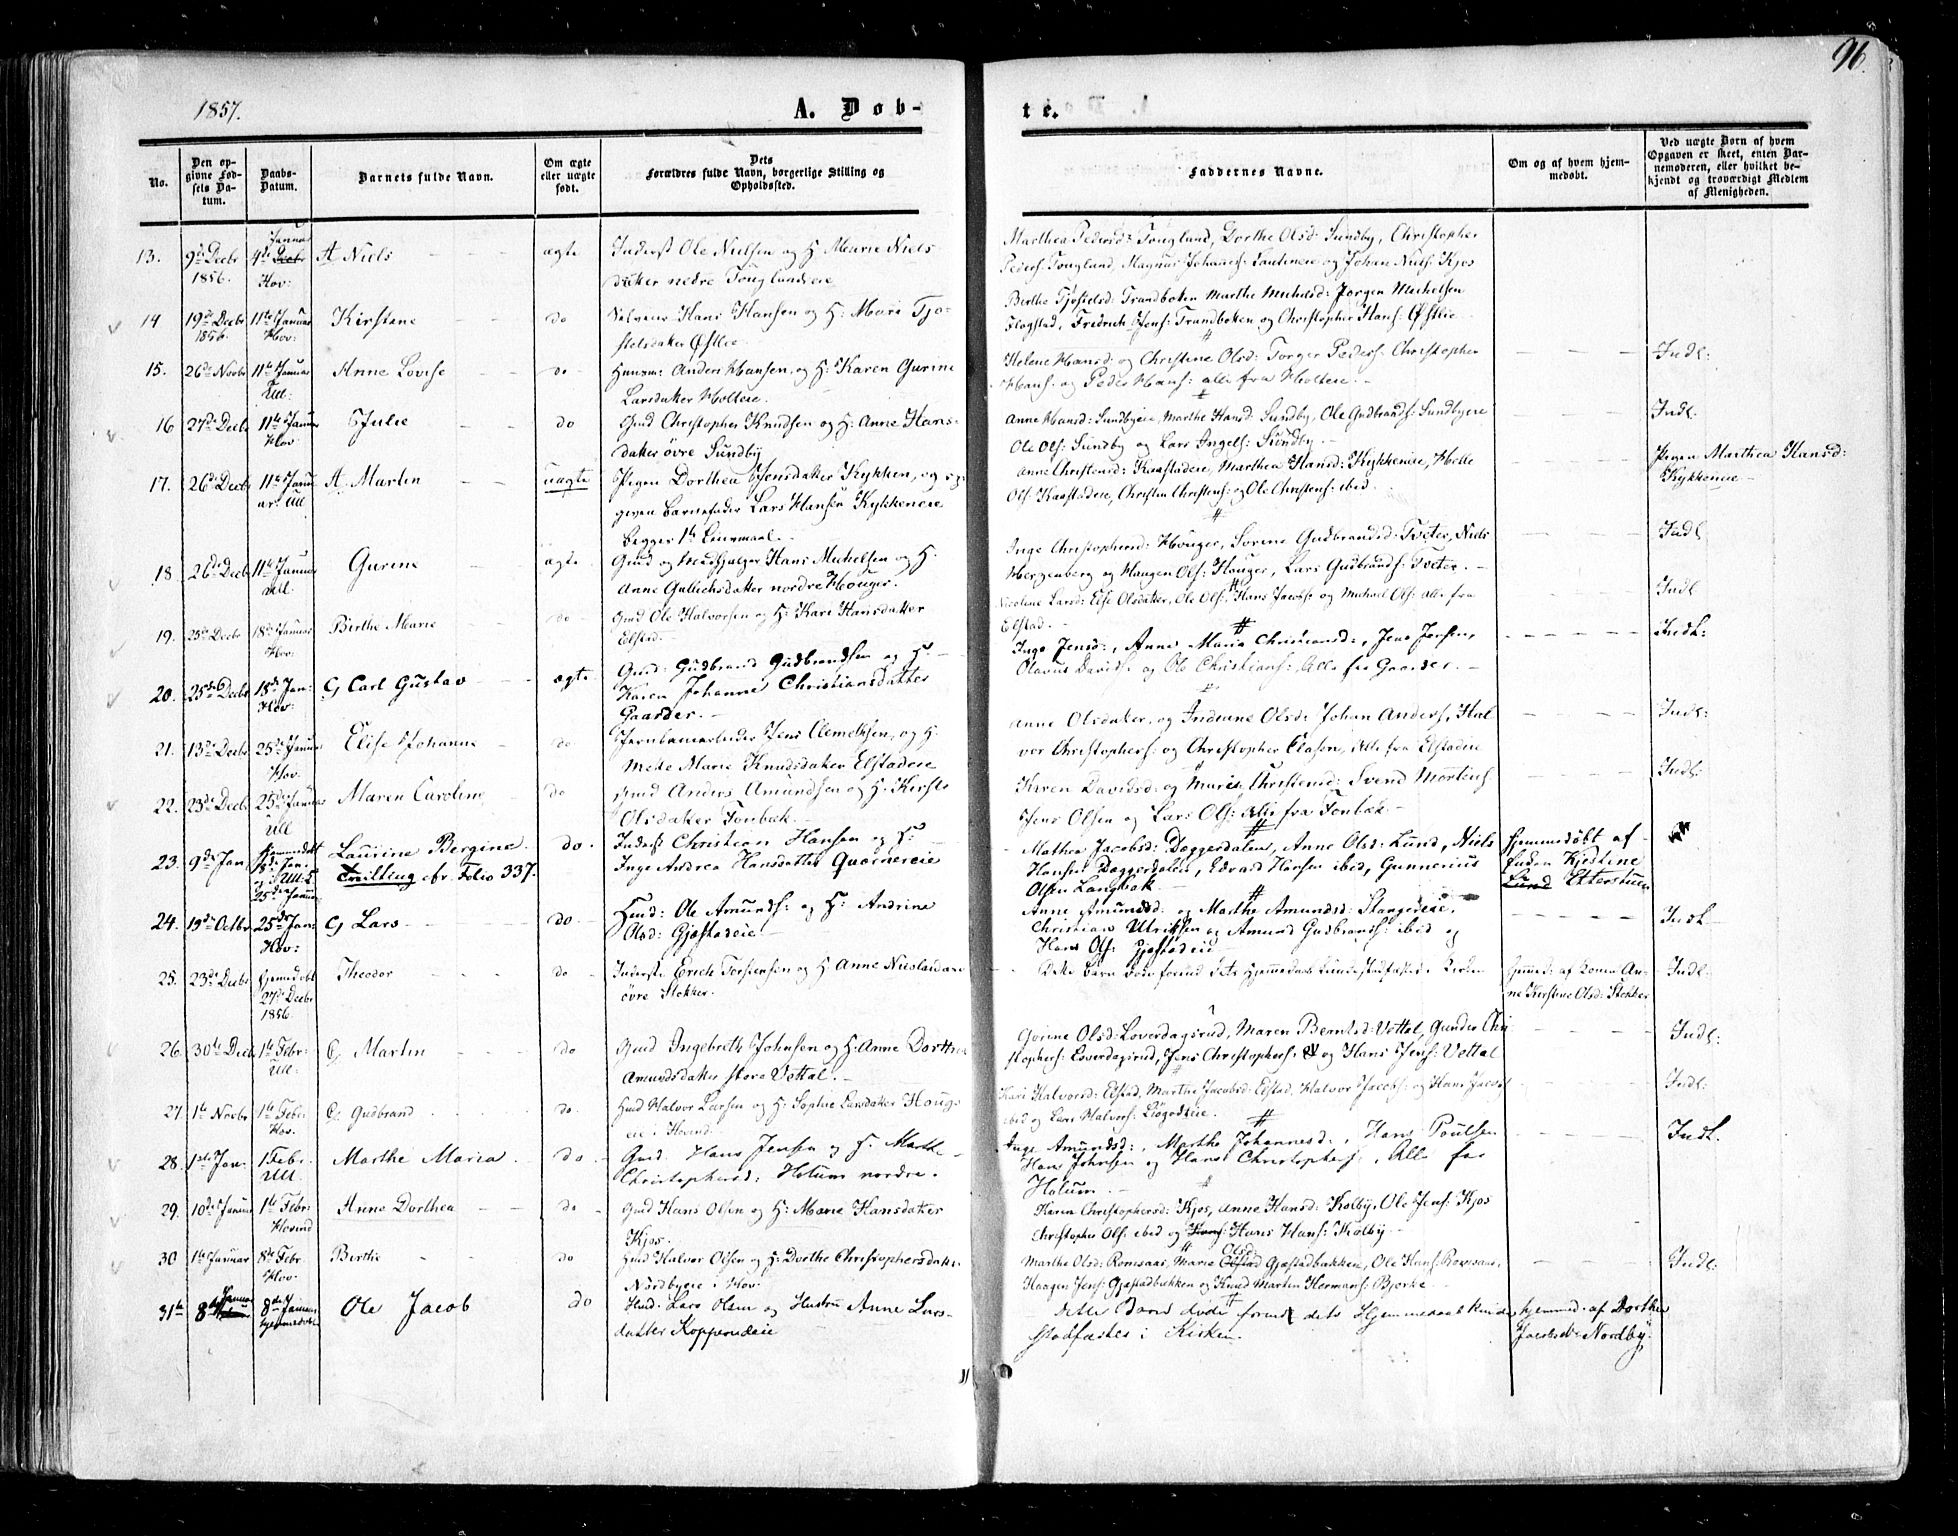 96.
1857.
A. Døb-
te.
No.
Den op-
givne Fød-
sels Da-
tum.
Daabs-
Datum.
Barnets fulde Navn.
Om ægte
eller uægte
født.
Dets
Forældres fulde Navn, borgerlige Stilling og
Opholdssted.
Faddernes Navne.
Om og af hvem hjem-
medøbt.
Ved uægte Børn af hvem
Opgaven er skeet, enten Bar-
nemoderen, eller hvilket be-
kjendt og troværdigt Medlem
af Menigheden.
13. 9de Decbr 1856. 4de Decbr Januar Hov: A Niels ægte
Inderst Ole Nielsen og H. Marie Niels
datter nedre Touglandeie
Marthea Pedersd: Tougland, Dorthe Olsd: Sundby, Christopher
Peders: Tougland, Magnus Johannes: og Johan Niels: Kjos
14 19de Decbr 1856. 11te Januar Hov: Kirstine do
Hans Hansen og H: Mari Tjo-
stelsdatter Østlie
Birthe Tjøstelsd: Trandbøken Marthe Michelsd: Jørgen Michelsen
Flogstad, Fredrich Jens: Trandbøken og Christopher Hans: Østlie
15. 26de Novbr 11te Januar Ull. Anne Lovise do
Huusm: Anders Hansen, og H: Karen Gurine
Larsdatter Holteie.
Helene Hansd: og Christine Olsd: Torger Peders: Christopher
Hans: og Peder Hans: alle fra Holteie.
Indl:
16 27de Decbr 11te Januar Hov Julie do
Gmd Christopher Knudsen og H: Anne Hans-
datter øvre Sundby
Anne Hansd: Sundbyeie, Marthe Hansd: Sundby, Ole Gudbrands: Sundbyeie
Ole Ols: Sundby og Lars Ingels: Sundby.
Indl.
17. 26de Decbr 11te Janu ar Ull A Martin uægte
Pigen Dorthea Jensdatter Kykken, og op-
given Barnefader Lars Hansen Kykkeneie
begges 1ste Leiermaal.
Anne Christensd: Kaastadeie, Marthea Hansd: Kykkeneie, Helle
Ols: Kaastadeie, Christen Christens: og Ole Christens: ibid.
Pigen Marthea Hansd:
Kykkeneie
18 26de Decbr 11te Januar Ull. Gurine ægte
Gmd og Medhjælper Hans Michelsen og H.
Anne Gullichsdatter nordre Houger.
Inge Christophersd: Houger, Sorine Gudbrandsd: Tveter, Niels
Hergenberg og Haagen Ols: Houger, Lars Gudbrands: Tveter.
Indl
19. 25de Decbr 18de Januar Hov: Birthe Marie do
Gmd Ole Halvorsen og H: Kari Hansdatter
Elstad.
Nicoline Larsd: Else Olsdatter, Ole Ols: Hans Jacobs: og Michael Ols: alle fra
Elstad.
Indl
20. 25de Decbr 18de Jan: Hov: G Carl Gustav ægte
Gmd: Gudbrand Gudbrandsen og H.
Karen Johanne Christiansdatter
Gaarder.
Inge Jensd:, Anne Maria Christiansd:, Jens Jensen,
Olavus Davids: og Ole Christians: Alle fra Gaarder.
Indl:
21. 13de Decbr 25de Januar Hov. Elise Johanne do
Jernbanearbeider Jens Clemetsen, og H.
Mette Marie Knudsdatter Elstadeie
Anne Olsdatter, og Indiane Olsd: Johan Anders: Hal
vor Christophers: og Christopher Clasen, Alle fra Elstadeie
Indl:
22. 23de Decbr 25de Januar Ull Maren Caroline do
Gmd Anders Amundsen og H. Kirsti
Olsdatter Tonbæk.
Karen Davidsd: og Maria Christensd: Svend Mortens:
Jens Olsen og Lars Ols: Alle fra Tonbæk
Indl:
23. 9de Jan. 18de Jan. 25de Januar Laurine Bergine.
Tvilling cfr. Folio 337. do.
Inderst Christian Hansen og H:
Inge Andrea Hansdatter Quærnereie
Mathea Jacobsd: Daggerdalen, Anne Olsd: Lund, Niels
Hansen Daggerdalen, Edvard Hansen ibid, Gunnerius
Olsen Langbak
Hjemmedøbt af
Kjestine
Lund Etterstuen
24. 19de Octbr 25de Jan: Hov: G Lars do
Hmd: Ole Amunds: og H: Andrine
Olsd: Gjøstadeie.
Anne Amundsd: og Marthe Amundsd: Stangereie,
Christian Ulriksen og Amund Gudbrands: ibid og
Hans Ols: Gjøstadeie
Indl
25. 23de Decbr hjemmedøbt 27de Decbr 1856 Theodor do
Inderste Erich Torstensen og H Anne Nicolaidatter
øvre Slokker.
Dette Barn døde forend dets Hjemmedaab kunde stadfæstes i Kirken
hjemmed: af Konen An-
ne Kirstine Olsd: Slokker
Indl:
26. 30te Decbr 1ste Febr: Ull. G Martin do
Gmd Ingebreth Johnsen og H: Anne Dorthea
Amundsdatter store Vettal.
Gorine Olsd: Loverdagsrud, Maren Berntsd: Vettal, Gunder Chri
stophers: Loverdagsrud, Jens Christophers: og Hans Jens: Vettal
Indl:
27. 1ste Novbr 1ste Febr: Hov. G Gudbrand do.
Hmd Halvor Larsen og H: Sophie Larsdatter Houg-
eie i Hovind.
Kari Halvorsd: Elstad, Marthe Jacobsd: Elstad, Halvor Jacobs: og Hans Jacobs:
ibid og Lars Halvors: Liøgodteie.
Indl
28. 1ste Jan. 1 Febr. Ull. Marthe Maria do
Gmd. Hans Jensen og H. Marthe
Christophersd: Holum nordre.
Inge Amundsd:, Marthe Johannesd:, Hans Poulsen
Hans Johnsen og Hans Christophers:, Alle fra
Holum.
Indl.
29. 10de Januar 1ste Febr: Hovind Anne Dorthea do
Gmd Hans Olsen og H: Marie Hansdatter
Kjos.
Karen Christophersd: Kjos, Anne Hansd: Kolby, Ole Jens: Kjos
Christopher Ols: ibid og Hans Hans: Kolby
30 1ste Januar 8de Febr Hov. Birthe do
Hmd Halvor Olsen og H: Dorthe Christophersdatter
Nordbyeie i Hov.
Marthe Olsd: Romsaas, Marie Olsd: Gjøstadbakken, Ole Hans: Romsaas,
Haagen Jens: Gjøstadbakken og Knud Martin Hermans: Bjerke
Indl.
31te 8de Januar 8de Januar hjemmedøbt Ole Jacob do
Hmd: Lars Olsen og Hustru Anne Lars-
datter Kopperudeie
Dette Barn døde forend dets Hjemmedaab kunde
stadfæstes i Kirken.
hjemmed: af Dorthea
Jacobsdtr Nordby.